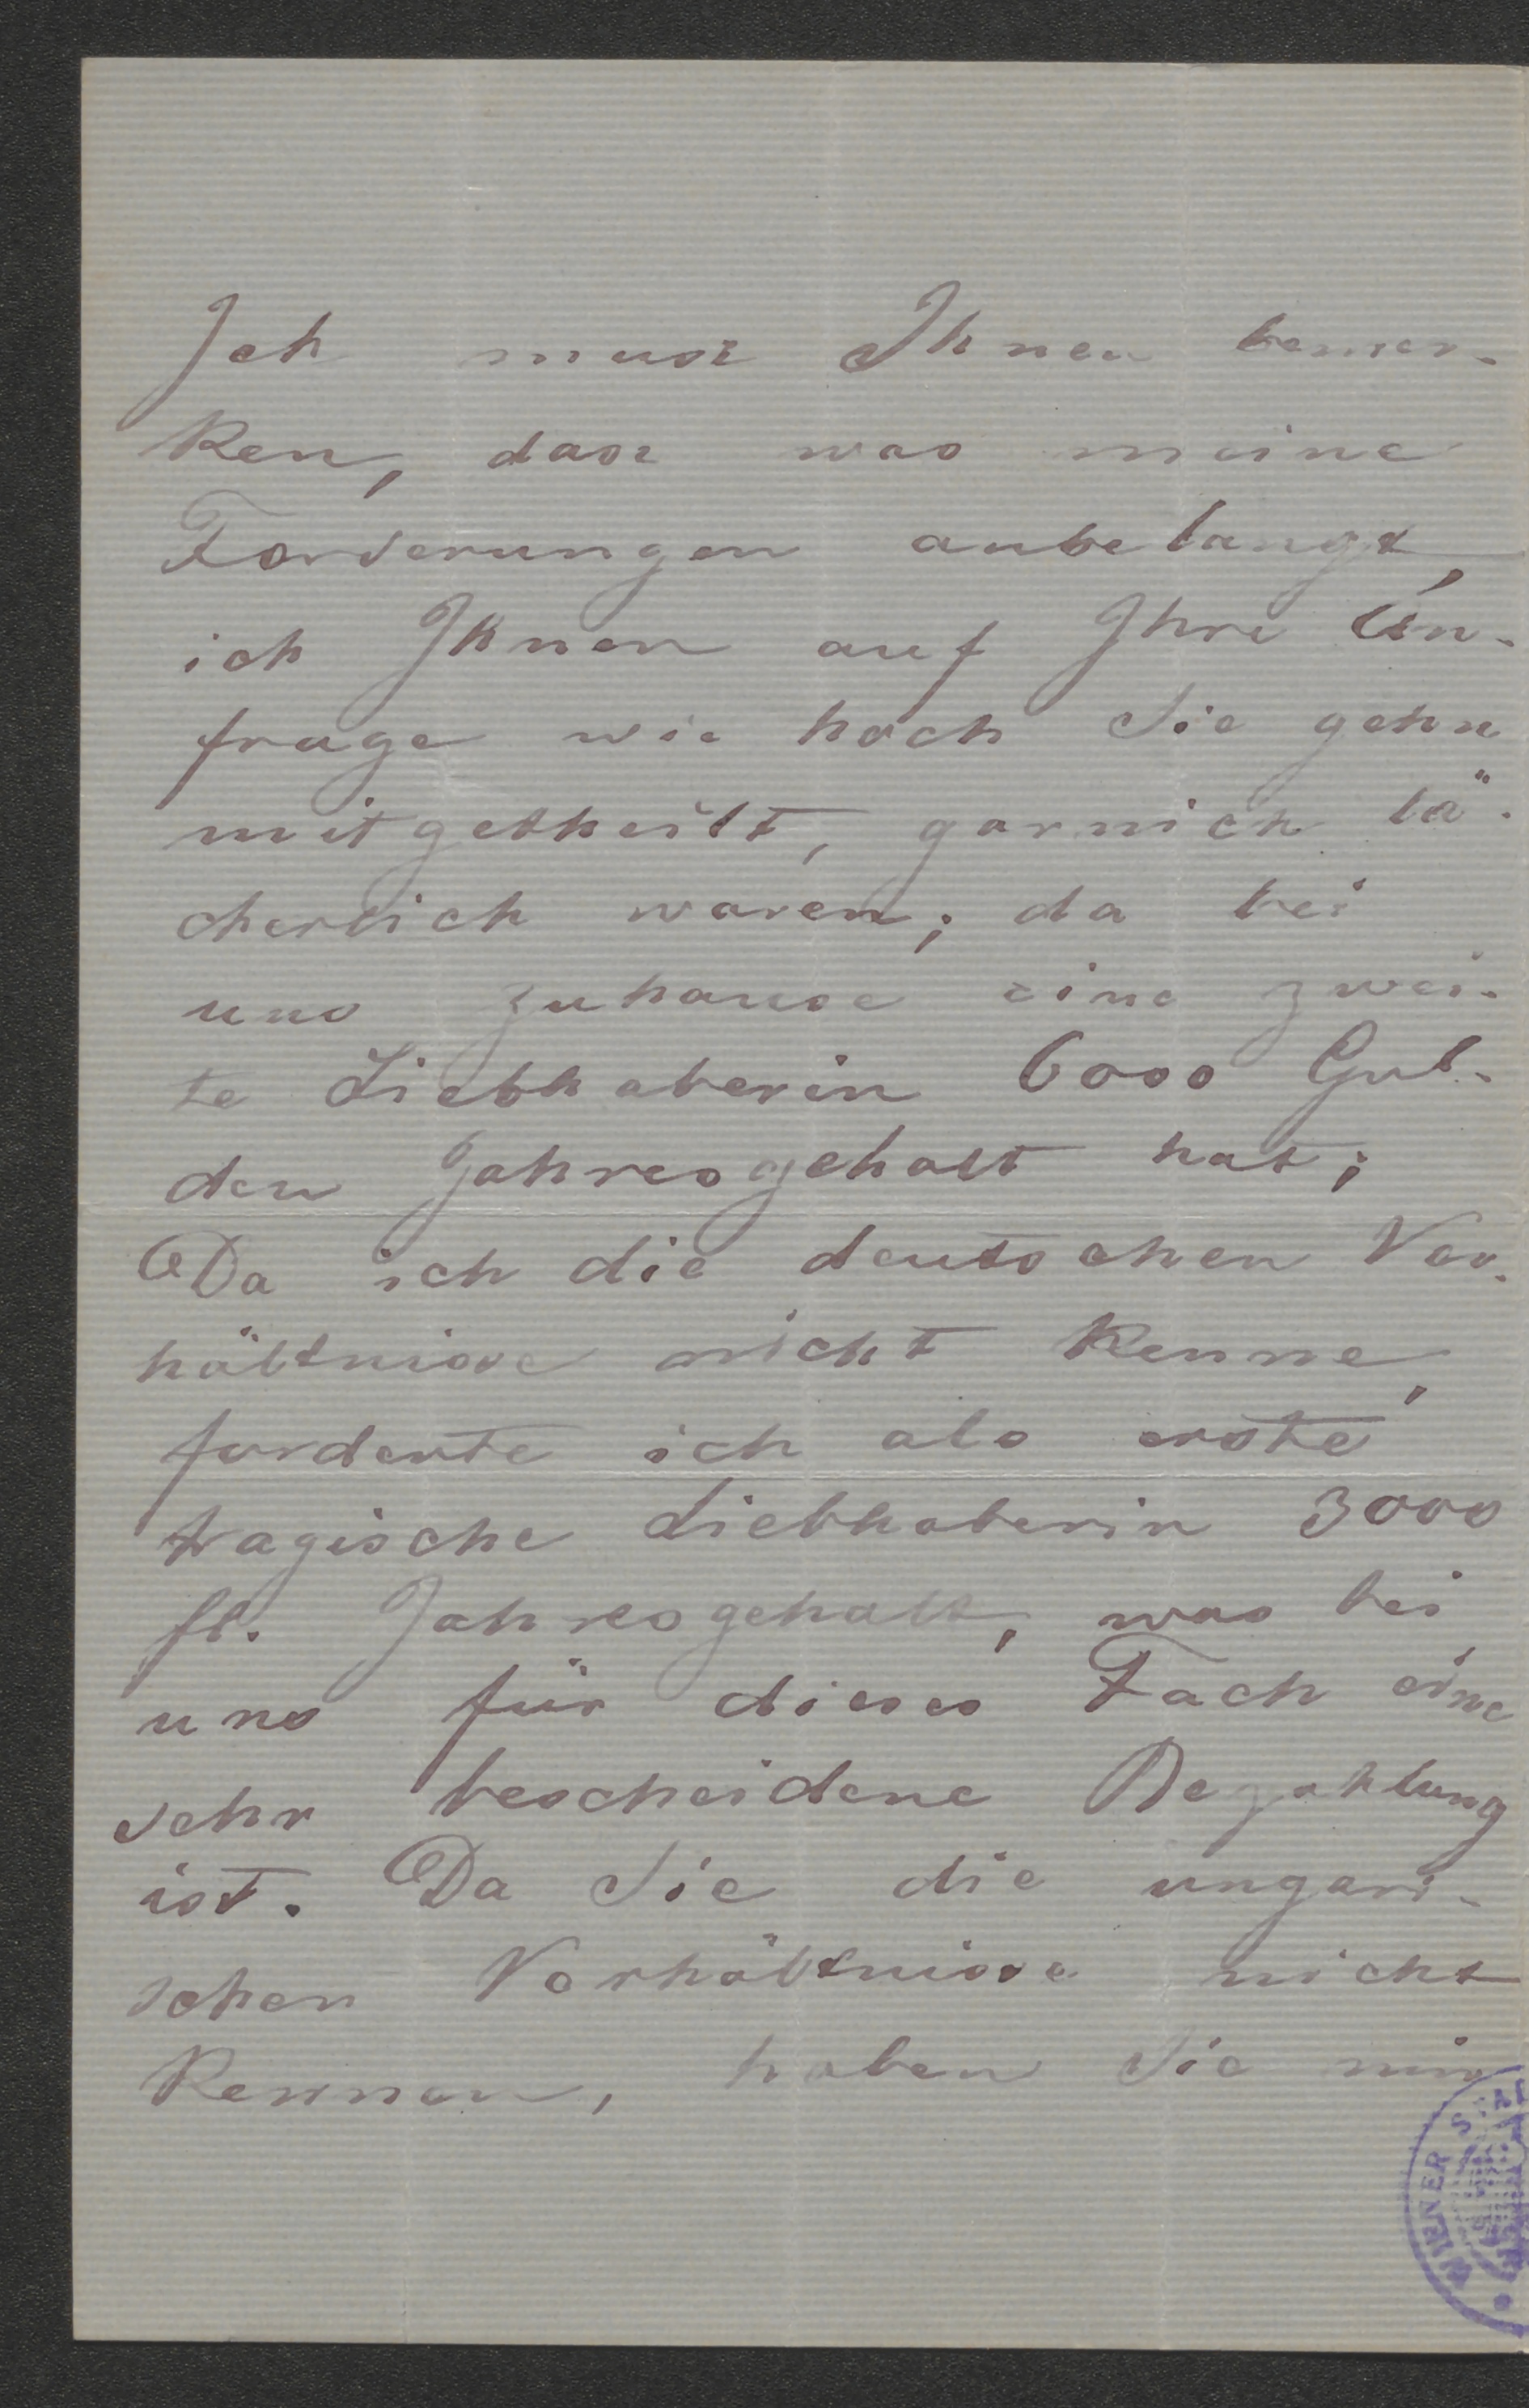 Ich muss Ihnen bemer-
ken, dass was meine
Forderungen anbelangt,
ich Ihnen auf Ihre An-
frage wie hoch Sie gehn
mitgetheilt, garnich lä-
cherlich waren; da bei
uns zuhause eine zwei-
te Liebhaberin 6000 Gul-
den Jahresgehalt hat;
Da ich die deutschen Ver-
hältnisse nicht kenne,
forderte ich als erste
tragische Liebhaberin 3000
fl. Jahresgehalt, was bei
uns für dieses Fach eine
sehr bescheidene Bezahlung
ist. Da Sie die ungari-
schen Verhältnisse nicht
kennen, haben Sie mir
WIENER